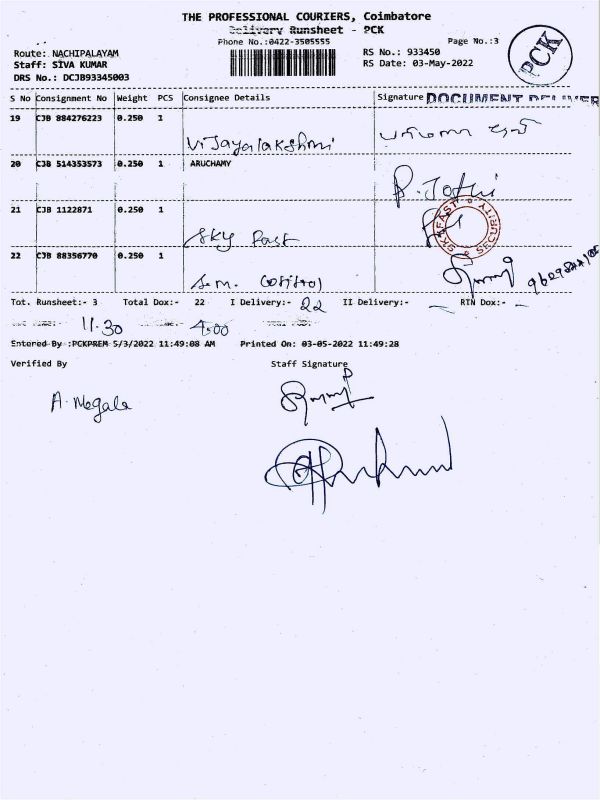 THE PROFESSIONAL COURIERS, Coimbatore
Delivery Runsheet - PCK
Phone No.:0422-3505555
Page No.:3
PCK
Route: NACHIPALAYAM
RS No.: 933450
Staff: SIVA KUMAR
RS Date: 03-May-2022
DRS No.: DCJB93345003
S No Consignment No Weight PCS Consignee Details Signature DOCUMENT DELIVER
19 CJB 884276223 0.250 1
Vijayalakshmi
20 CJB 514353573 0.250 1 ARUCHAMY
P. Jothi
21 CJB 1122871 0.250 1
SKYFAST SECURITY
Sky Fast
22 CJB 88356770 0.250 1
S.M.
Tot. Runsheet:- 3 Total Dox:- 22 I Delivery:- 22 II Delivery:- RTN Dox:- -
11.30 4.00
Entered By :PCKPREM 5/3/2022 11:49:08 AM Printed On: 03-05-2022 11:49:28
Verified By Staff Signature
A. Megala